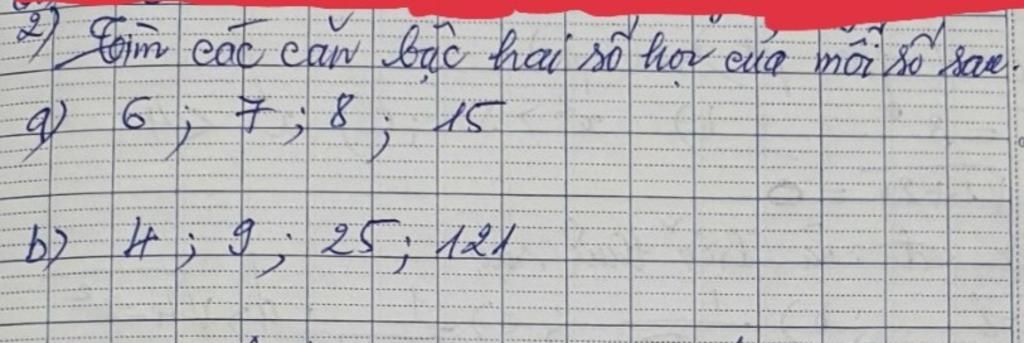 2) Tìm các căn bậc hai số học của mỗi số sau.
a) 6 ; 7 ; 8 ; 15
b) 4 ; 9 ; 25 ; 121